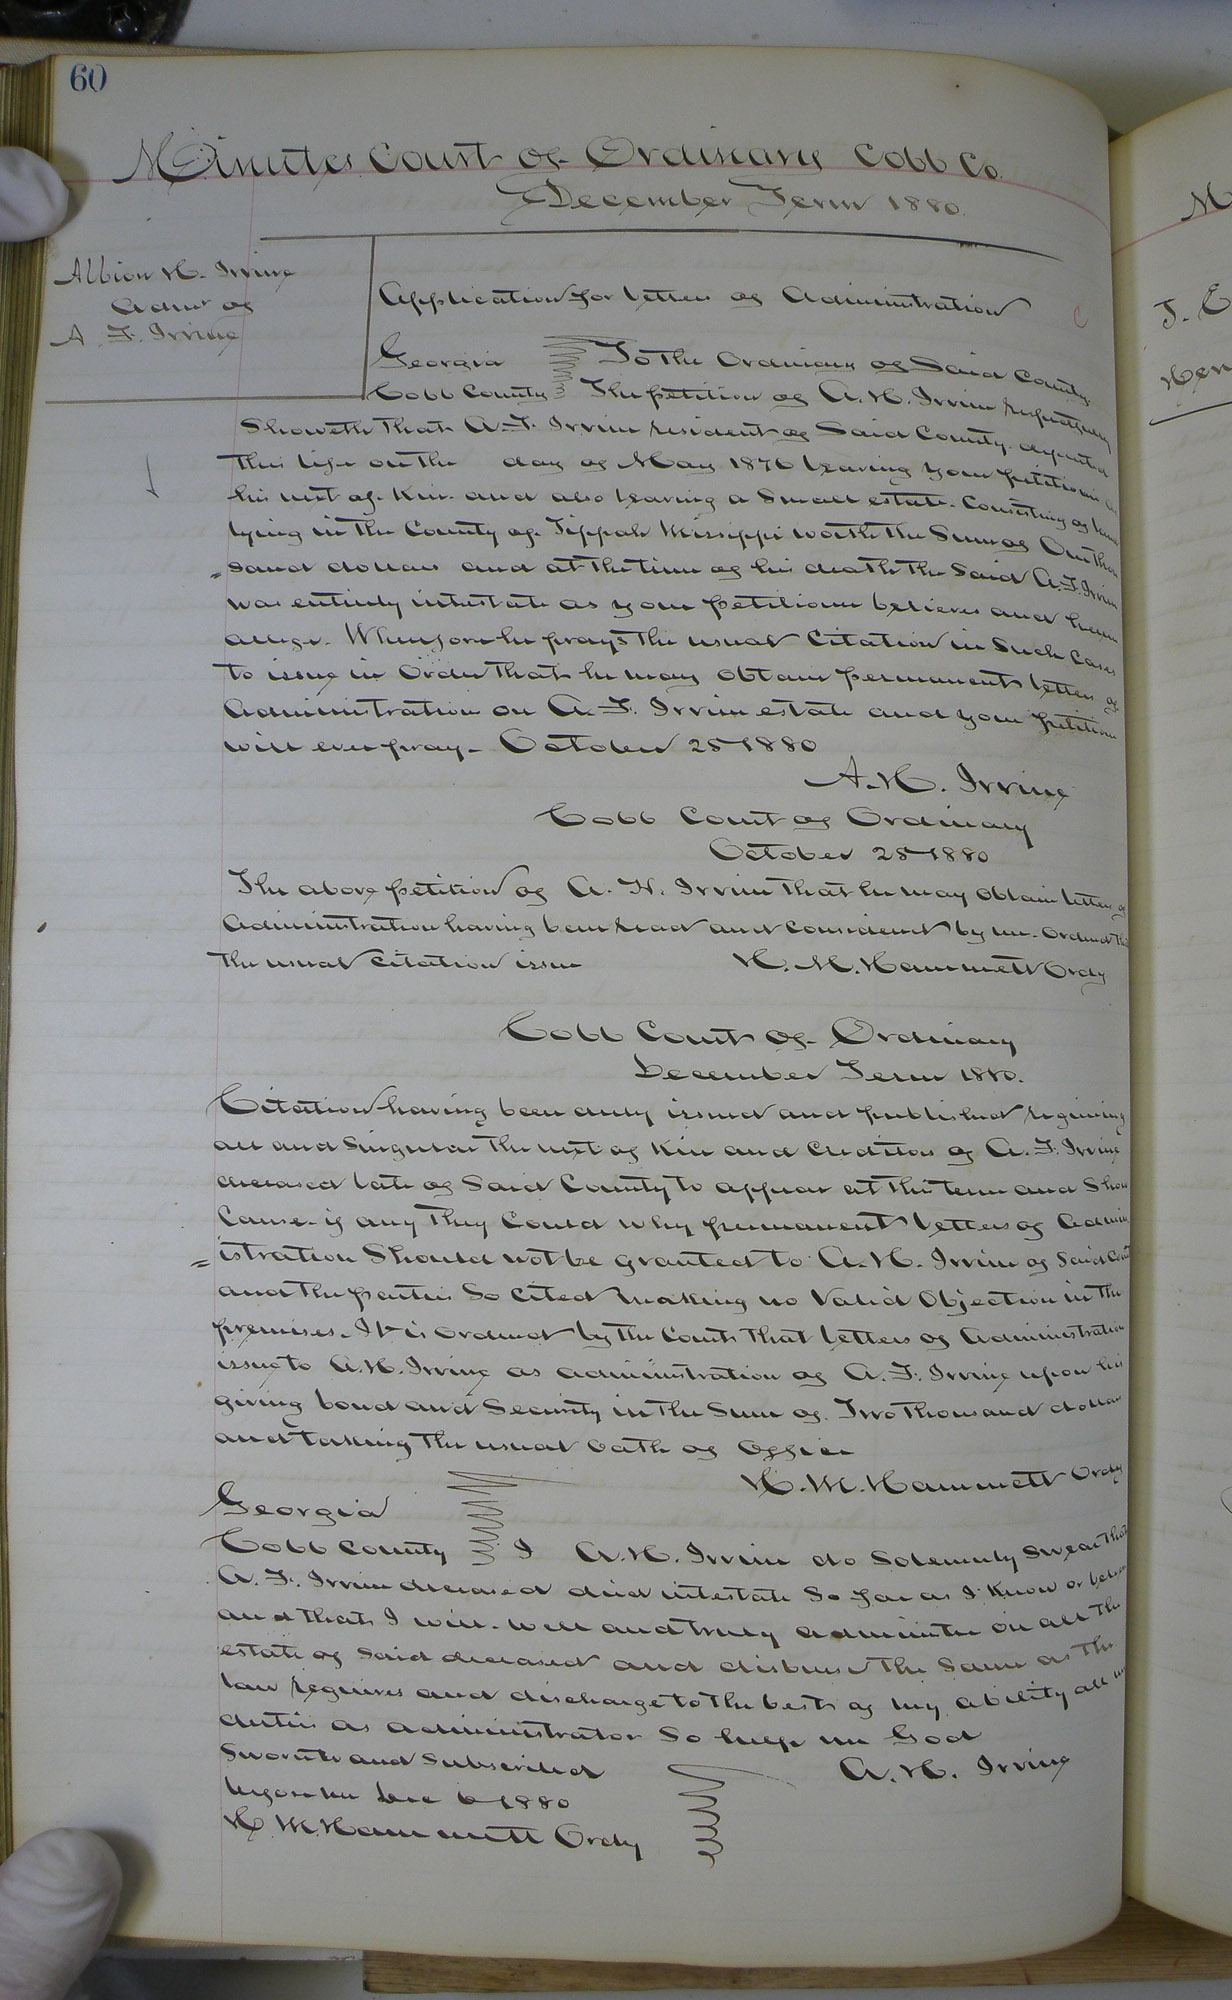 60
Minutes Court of Ordinary Cobb Co.
December Term 1880.
Albion H. Irvine
Admr of
A. F. Irvine
Application for Letters of Administration
Georgia
Cobb County
To the Ordinary of Said County
The petition of A. H. Irvine respectfully
Showeth that A. F. Irvine resident of Said County departed
this life on the day of May 1876 leaving your petitioner
his next of Kin. and also leaving a Small estate. Consisting of land
lying in the County of Tippah Missippi worth the Sum of One thou
=sand dollars and at the time of his death the Said A. F. Irvine
was entirely intestate as your petitioner believes and hence
alleges. Wherefore he prays the usual Citation in Such Cases
to issue in Order that he may obtain permanent letters of
Administration on A. F. Irvine estate and your petition
will ever pray. October 25 1880
A. H. Irvine
Cobb Court of Ordinary
October 25 1880
The above petition of A. H. Irvine that he may obtain letters of
Administration having been read and considered by me. Ordered that
the usual Citation issue H. M. Hammett Ordy
Cobb Court of Ordinary
December Term 1880.
Citation having been duly issued and published requiring
all and Singular the next of Kin and creditors of A. F. Irvine
deceased late of Said County to appear at this term and Show
Cause. if any they Could why permanent letters of Admin
=istration Should not be granted to A. H. Irvine of Said Count
and the parties So cited making no Valid Objection in the
premises. It is ordered by the Court that letters of Administration
issue to A. H. Irvine as administration of A. F. Irvine upon his
giving bond and Security in the Sum of Two Thousand dollars
and taking the usual oath of Office
H. M. Hammett Ordy
Georgia
Cobb County I A. H. Irvine do Solemnly Swear that
A. F. Irvine deceased died intestate So far as I Know or believe
and that I will. well and truly administer on all the
estate of Said deceased and disburse the Same as the
law requires and discharge to the best of my ability all my
duties as administrator So help me God
Sworn to and Subscribed A. H. Irvine
before me Dec 6 1880
H M Hammett Ordy
M
J. E
Hen